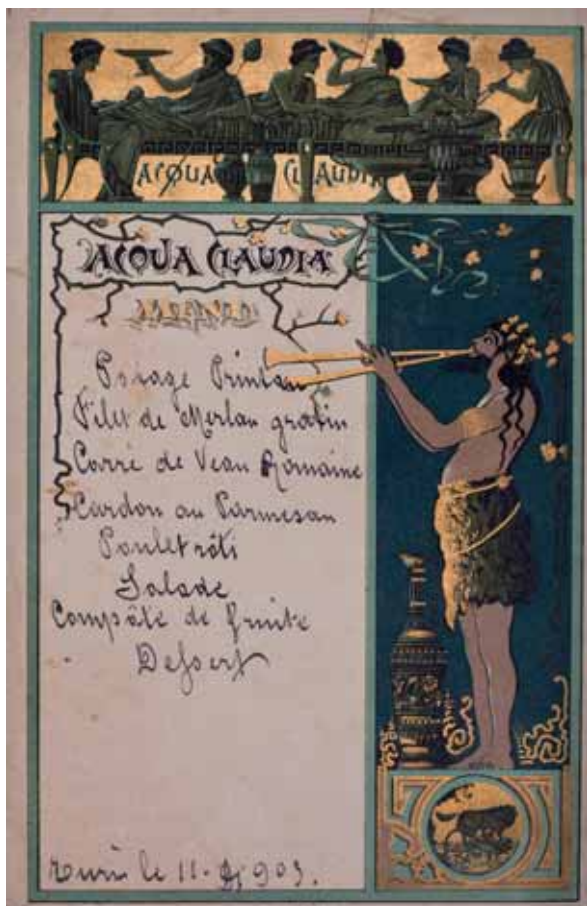 ACQUA CLAUDIA
ACQUA CLAUDIA
Potage Printan
Filet de Merlan gratin
Carré de Veau Romaine
Cardon au Parmesan
Poulet rôti
Salade
Compôte de fruite
Dessert
le 11-
903.